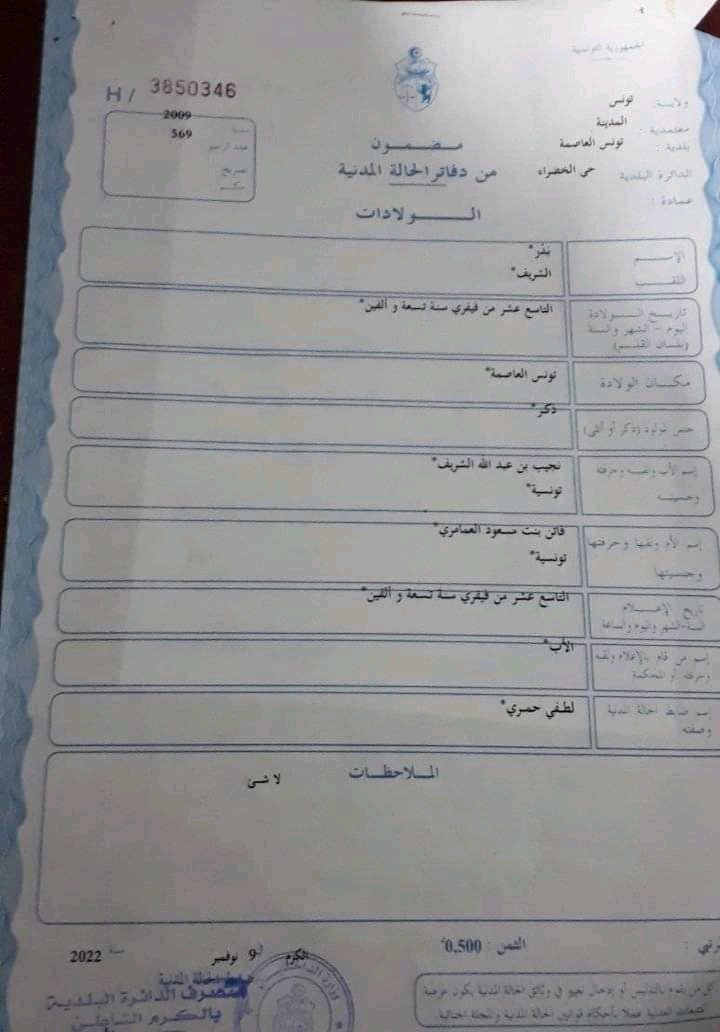 الجمهورية التونسية
H/ 3850346
ولاية: تونس
معتمدية: المدينة
بلدية: تونس العاصمة
الدائرة البلدية: حي الخضراء
عمادة:
سنة 2009
عدد الرسم 569
تصريح
حكم
مضمون
من دفاتر الحالة المدنية
الولادات
الإسم بدر*
اللقب الشريف*
تاريخ الولادة
اليوم - الشهر والسنة
(بلسان القلم)
التاسع عشر من فيفري سنة تسعة و ألفين*
مكان الولادة تونس العاصمة*
جنس المولود (ذكر أو أنثى) ذكر*
إسم الأب ولقبه وحرفته نجيب بن عبد الله الشريف*
وجنسيته تونسية*
إسم الأم ولقبها وحرفتها فاتن بنت مسعود العمامري*
وجنسيتها تونسية*
تاريخ الإعلام التاسع عشر من فيفري سنة تسعة و ألفين*
السنة-الشهر واليوم والساعة
إسم من قام بالإعلام ولقبه الأب*
وحرفته أو المحكمة
إسم ضابط الحالة المدنية لطفي حمري*
وصفته
الملاحظات
لا شئ
الثمن : 0,500
الكرم في 9 نوفمبر سنة 2022
ضابط الحالة المدنية
متصرف الدائرة البلدية
بالكرم الشاطئ
كل من يقوم بالتدليس أو إدخال تغيير في وثائق الحالة المدنية يكون عرضة
للتتبعات العدلية عملا بأحكام قوانين الحالة المدنية والمجلة الجنائية.